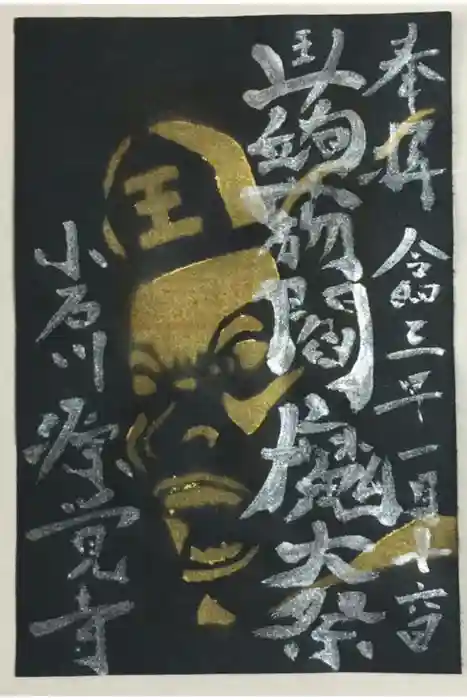 奉拝 令和三年一月十六日
蒟蒻閻魔大祭
王
小石川 源覚寺